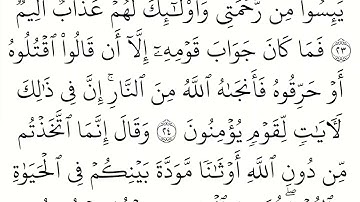 يَئِسُوا۟ مِن رَّحْمَتِى وَأُو۟لَٰٓئِكَ لَهُمْ عَذَابٌ أَلِيمٌ
﴿٢٣﴾ فَمَا كَانَ جَوَابَ قَوْمِهِۦٓ إِلَّآ أَن قَالُوا۟ ٱقْتُلُوهُ
أَوْ حَرِّقُوهُ فَأَنجَىٰهُ ٱللَّهُ مِنَ ٱلنَّارِ ۚ إِنَّ فِى ذَٰلِكَ
لَءَايَٰتٍ لِّقَوْمٍ يُؤْمِنُونَ ﴿٢٤﴾ وَقَالَ إِنَّمَا ٱتَّخَذْتُم
مِّن دُونِ ٱللَّهِ أَوْثَٰنًا مَّوَدَّةَ بَيْنِكُمْ فِى ٱلْحَيَوٰةِ